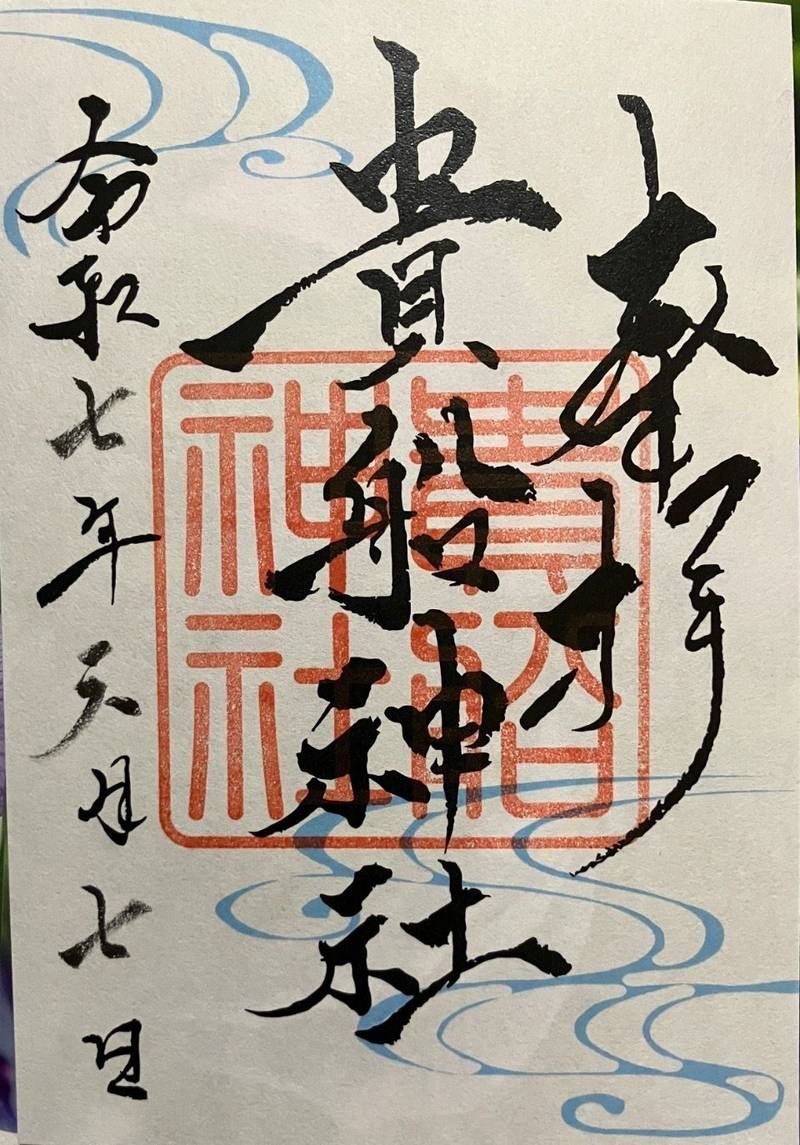 奉拝
貴船神社
令和七年六月七日
貴船
神社